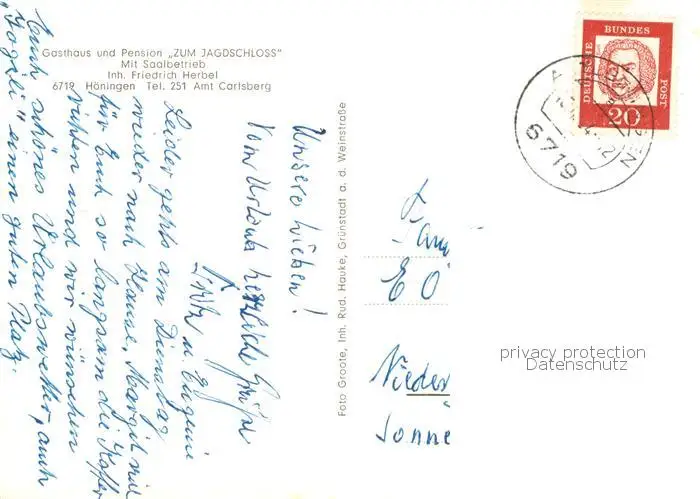 Gasthaus und Pension „ZUM JAGDSCHLOSS"
Mit Saalbetrieb
Inh. Friedrich Herbel
6719 Höningen Tel. 251 Amt Carlsberg
Unsere Lieben!
Vom Urlaub herzliche Grüße
Fritz u. Eugenie
Leider gehts am Dienstag
wieder nach Hause, Margit will
für Euch so langsam die Koffer
richten und wir wünschen
Euch schönes Urlaubswetter, auch
einen guten Platz.
Foto Groote, Inh. Rud. Hauke, Grünstadt a. d. Weinstraße
Fam
E O
Nieder
Sonne
DEUTSCHE
BUNDES
POST
20
6719
privacy protection
Datenschutz